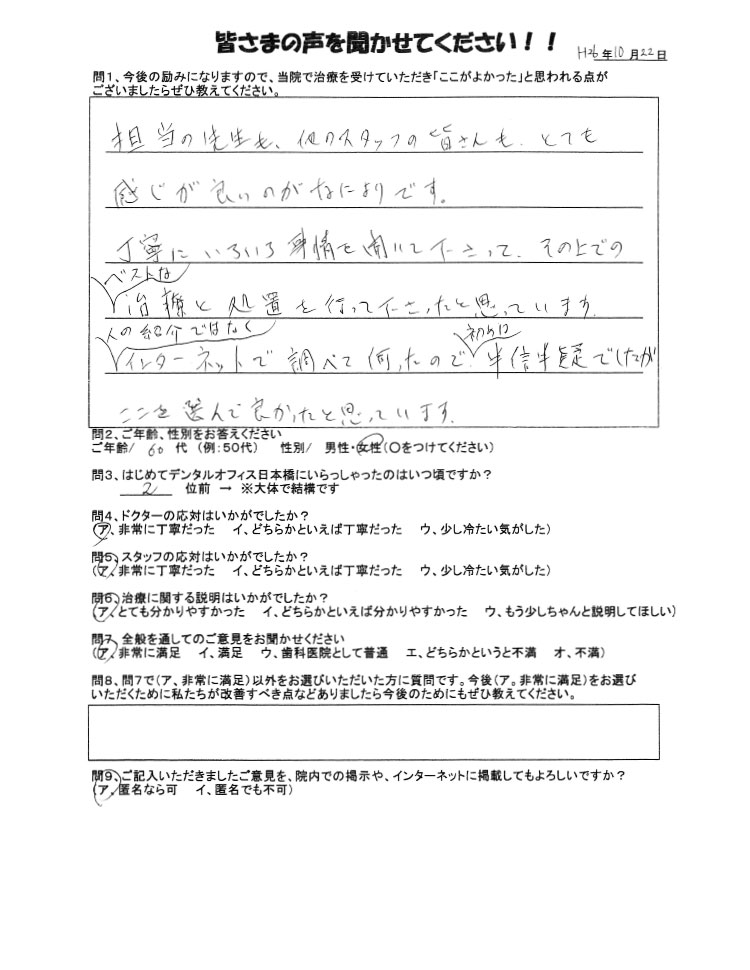 皆さまの声を聞かせてください！！
H26年10月22日
問１、今後の励みになりますので、当院で治療を受けていただき「ここがよかった」と思われる点が
ございましたらぜひ教えてください。
担当の先生も、他のスタッフの皆さんも、とても
感じが良いのがなによりです。
丁寧にいろいろ事情を聞いて下さって、その上での
ベストな
治療と処置を行って下さったと思っています。
人の紹介ではなく 初めは
インターネットで調べて伺ったので、半信半疑でしたが
ここを選んで良かったと思っています。
問２、ご年齢、性別をお答えください
ご年齢/ 60 代（例：50代） 性別/ 男性・女性（○をつけてください）
問３、はじめてデンタルオフィス日本橋にいらっしゃったのはいつ頃ですか？
2 位前 → ※大体で結構です
問４、ドクターの応対はいかがでしたか？
（ア、非常に丁寧だった イ、どちらかといえば丁寧だった ウ、少し冷たい気がした）
問５、スタッフの応対はいかがでしたか？
（ア、非常に丁寧だった イ、どちらかといえば丁寧だった ウ、少し冷たい気がした）
問６、治療に関する説明はいかがでしたか？
（ア、とても分かりやすかった イ、どちらかといえば分かりやすかった ウ、もう少しちゃんと説明してほしい）
問７、全般を通してのご意見をお聞かせください
（ア、非常に満足 イ、満足 ウ、歯科医院として普通 エ、どちらかというと不満 オ、不満）
問８、問７で（ア、非常に満足）以外をお選びいただいた方に質問です。今後（ア。非常に満足）をお選び
いただくために私たちが改善すべき点などありましたら今後のためにもぜひ教えてください。
問９、ご記入いただきましたご意見を、院内での掲示や、インターネットに掲載してもよろしいですか？
（ア、匿名なら可 イ、匿名でも不可）